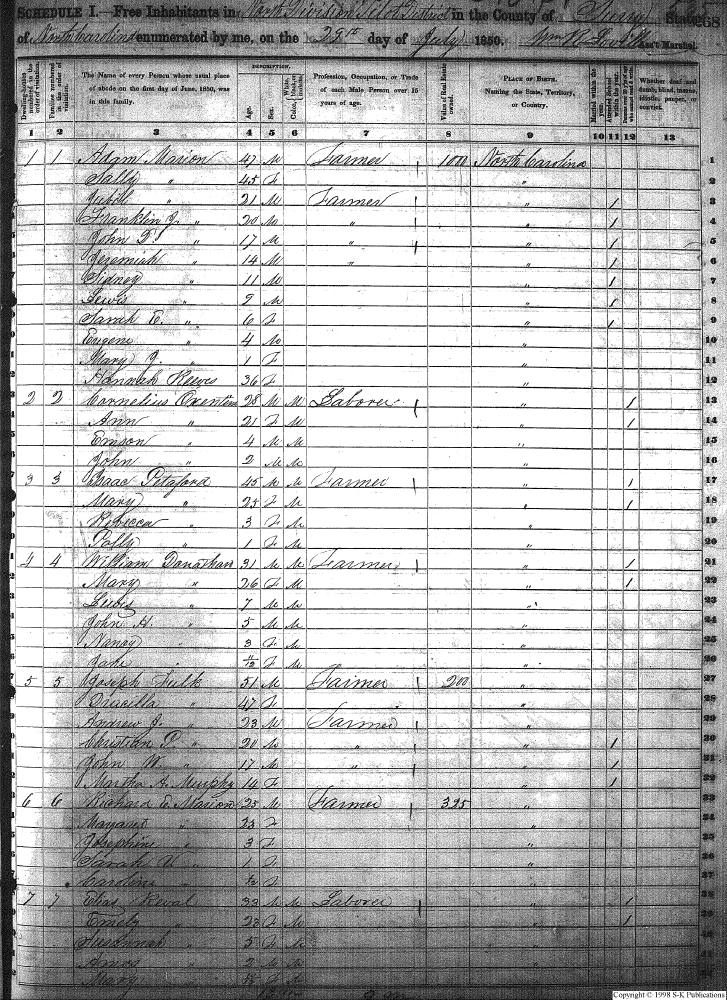 SCHEDULE I.—Free Inhabitants in North Division Pilot District in the County of Surry State
of North Carolina enumerated by me, on the 29th day of July 1850. Wm R. Ass't Marshal. 268
Dwelling-houses numbered in the order of visitation.
Families numbered in the order of visitation.
The Name of every Person whose usual place of abode on the first day of June, 1850, was in this family.
DESCRIPTION.
Age.
Sex.
Profession, Occupation, or Trade of each Male Person over 15 years of age.
Value of Real Estate owned.
PLACE OF BIRTH. Naming the State, Territory, or Country.
Whether deaf and dumb, blind, insane, idiotic, pauper, or convict.
1 2 3 4 5 6 7 8 9 10 11 12 13
1 1 Adam Marion 47 M Farmer 1000 North Carolina 1
Sally " 45 F " 2
21 M Farmer " / 3
Franklin J. " 20 M " " / 4
John " 17 M " " / 5
Jeremiah " 14 M " " / 6
Sidney " 11 M " / 7
Lewis " 9 M " / 8
Sarah E. " 6 F " / 9
Eugene " 4 M " 10
Mary J. " 1 F " 11
Hannah Reeves 36 F " 12
2 2 Cornelius 28 M M Laborer " / 13
Ann " 21 F M " / 14
" 4 M M " 15
John " 2 M M " 16
3 3 Isaac 45 M M Farmer " / 17
Mary " 25 F M " / 18
Rebecca " 3 F M " 19
Polly " 1 F M " 20
4 4 William Danathan 31 M M Farmer " / 21
Mary " 26 F M " / 22
Lewis " 7 M M " 23
John H. " 5 M M " 24
Nancy " 3 F M " 25
Jane " F M " 26
5 5 Joseph Fulk 51 M Farmer 200 " 27
Druscilla " 47 F " 28
Andrew J. " 23 M Farmer " 29
Christian P. " 20 M " " / 30
John W. " 17 M " " / 31
Martha A. Murphy 14 F " / 32
6 6 Richard E. Marion 25 M Farmer 325 " 33
Margaret " 23 F " 34
Josephine " 3 F " 35
Sarah " 1 F " 36
Caroline " F " 37
7 7 Elias 33 M M Laborer " / 38
Emely " 23 F M " / 39
Susannah " 5 F M "
Amos " 2 M M "
Mary " "
Copyright © 1998 S-K Publications